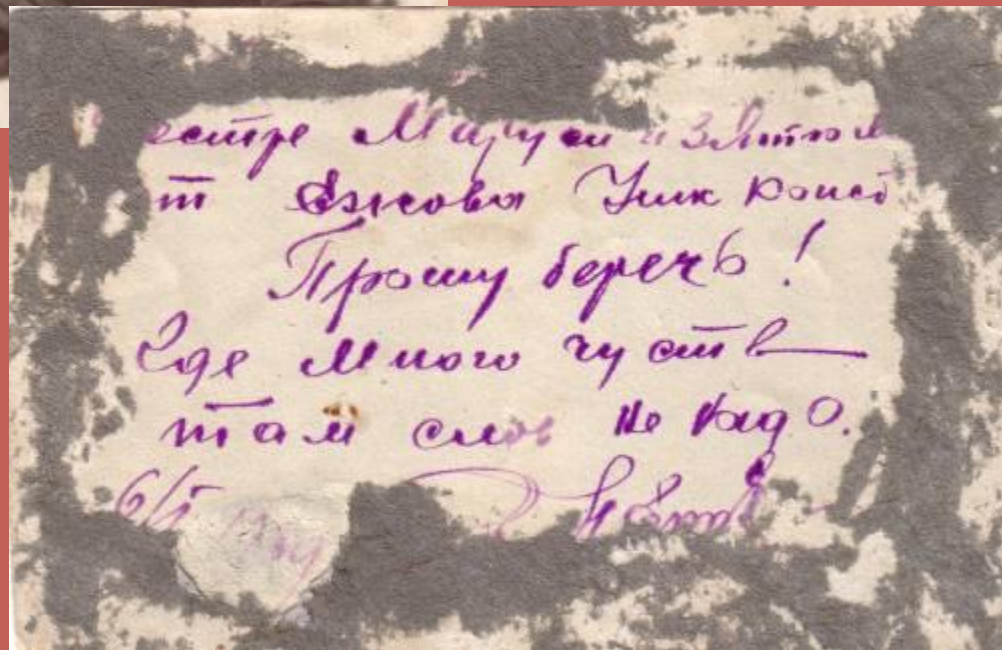 естре Маруси и Зятю
т Ежова Ник Конст
Прошу беречь!
Где много чуств
там слов не надо.
6/I